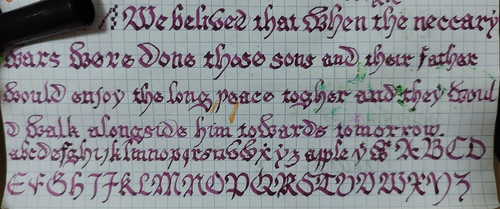 We belived that when the neccary
wars were done those sons and their father
would enjoy the long peace togher and they woul
d walk alongside him towards tomorrow.
abcdefghijklmnopqrsuvwxyz apple y & A B C D
E F G H I J K L M N O P Q R S T U V W X Y Z